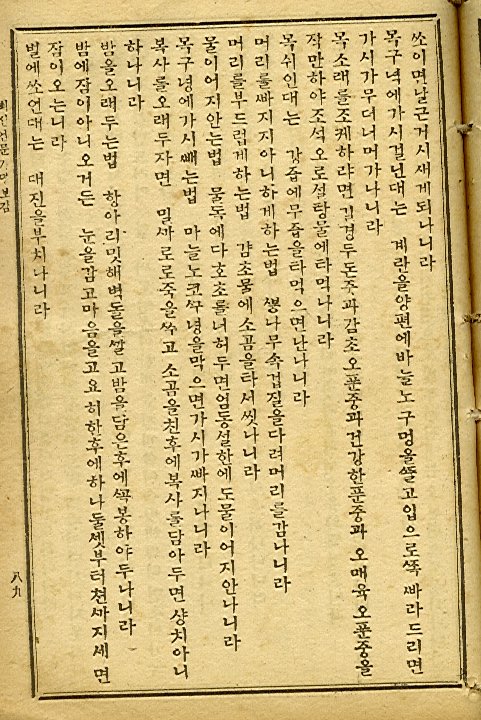 쏘이면날근거시새게되나니라
목구녁에가시걸닌대는 계란을양편에바늘노구멍을뚤고입으로쪽빠라드리면
가시가무더너머가나니라
목소래를조케하랴면 길경두돈중과감초오푼중과건강한푼중과오매육오푼중을
작만하야조석오로설탕물에타먹나니라
목쉬인대는 강즙에무즙을타먹으면난나니라
머리를빠지지아니하게하는법 뽕나무속겁질을다려머리를감나니라
머리를부드럽게하는법 감초물에소곰을타서씻나니라
물이어지안는법 물독에다호초를너허두면엄동설한에도물이어지안나니라
목구녕에가시빼는법 마늘노코구녕을막으면가시가빠지나니라
복사를오래두자면 밀싸로로죽을쑤고소곰을친후에복사를담아두면샹치아니
하나니라
밤을오래두는법 항아리밋헤벽돌을쌀고밤을담은후에쏙봉하야두나니라
밤에잠이아니오거든 눈을감고마음을고요히한후에하나둘셋부터천싸지세면
잠이오는니라
벌에쏘인대는 대진을부치나니라
八九